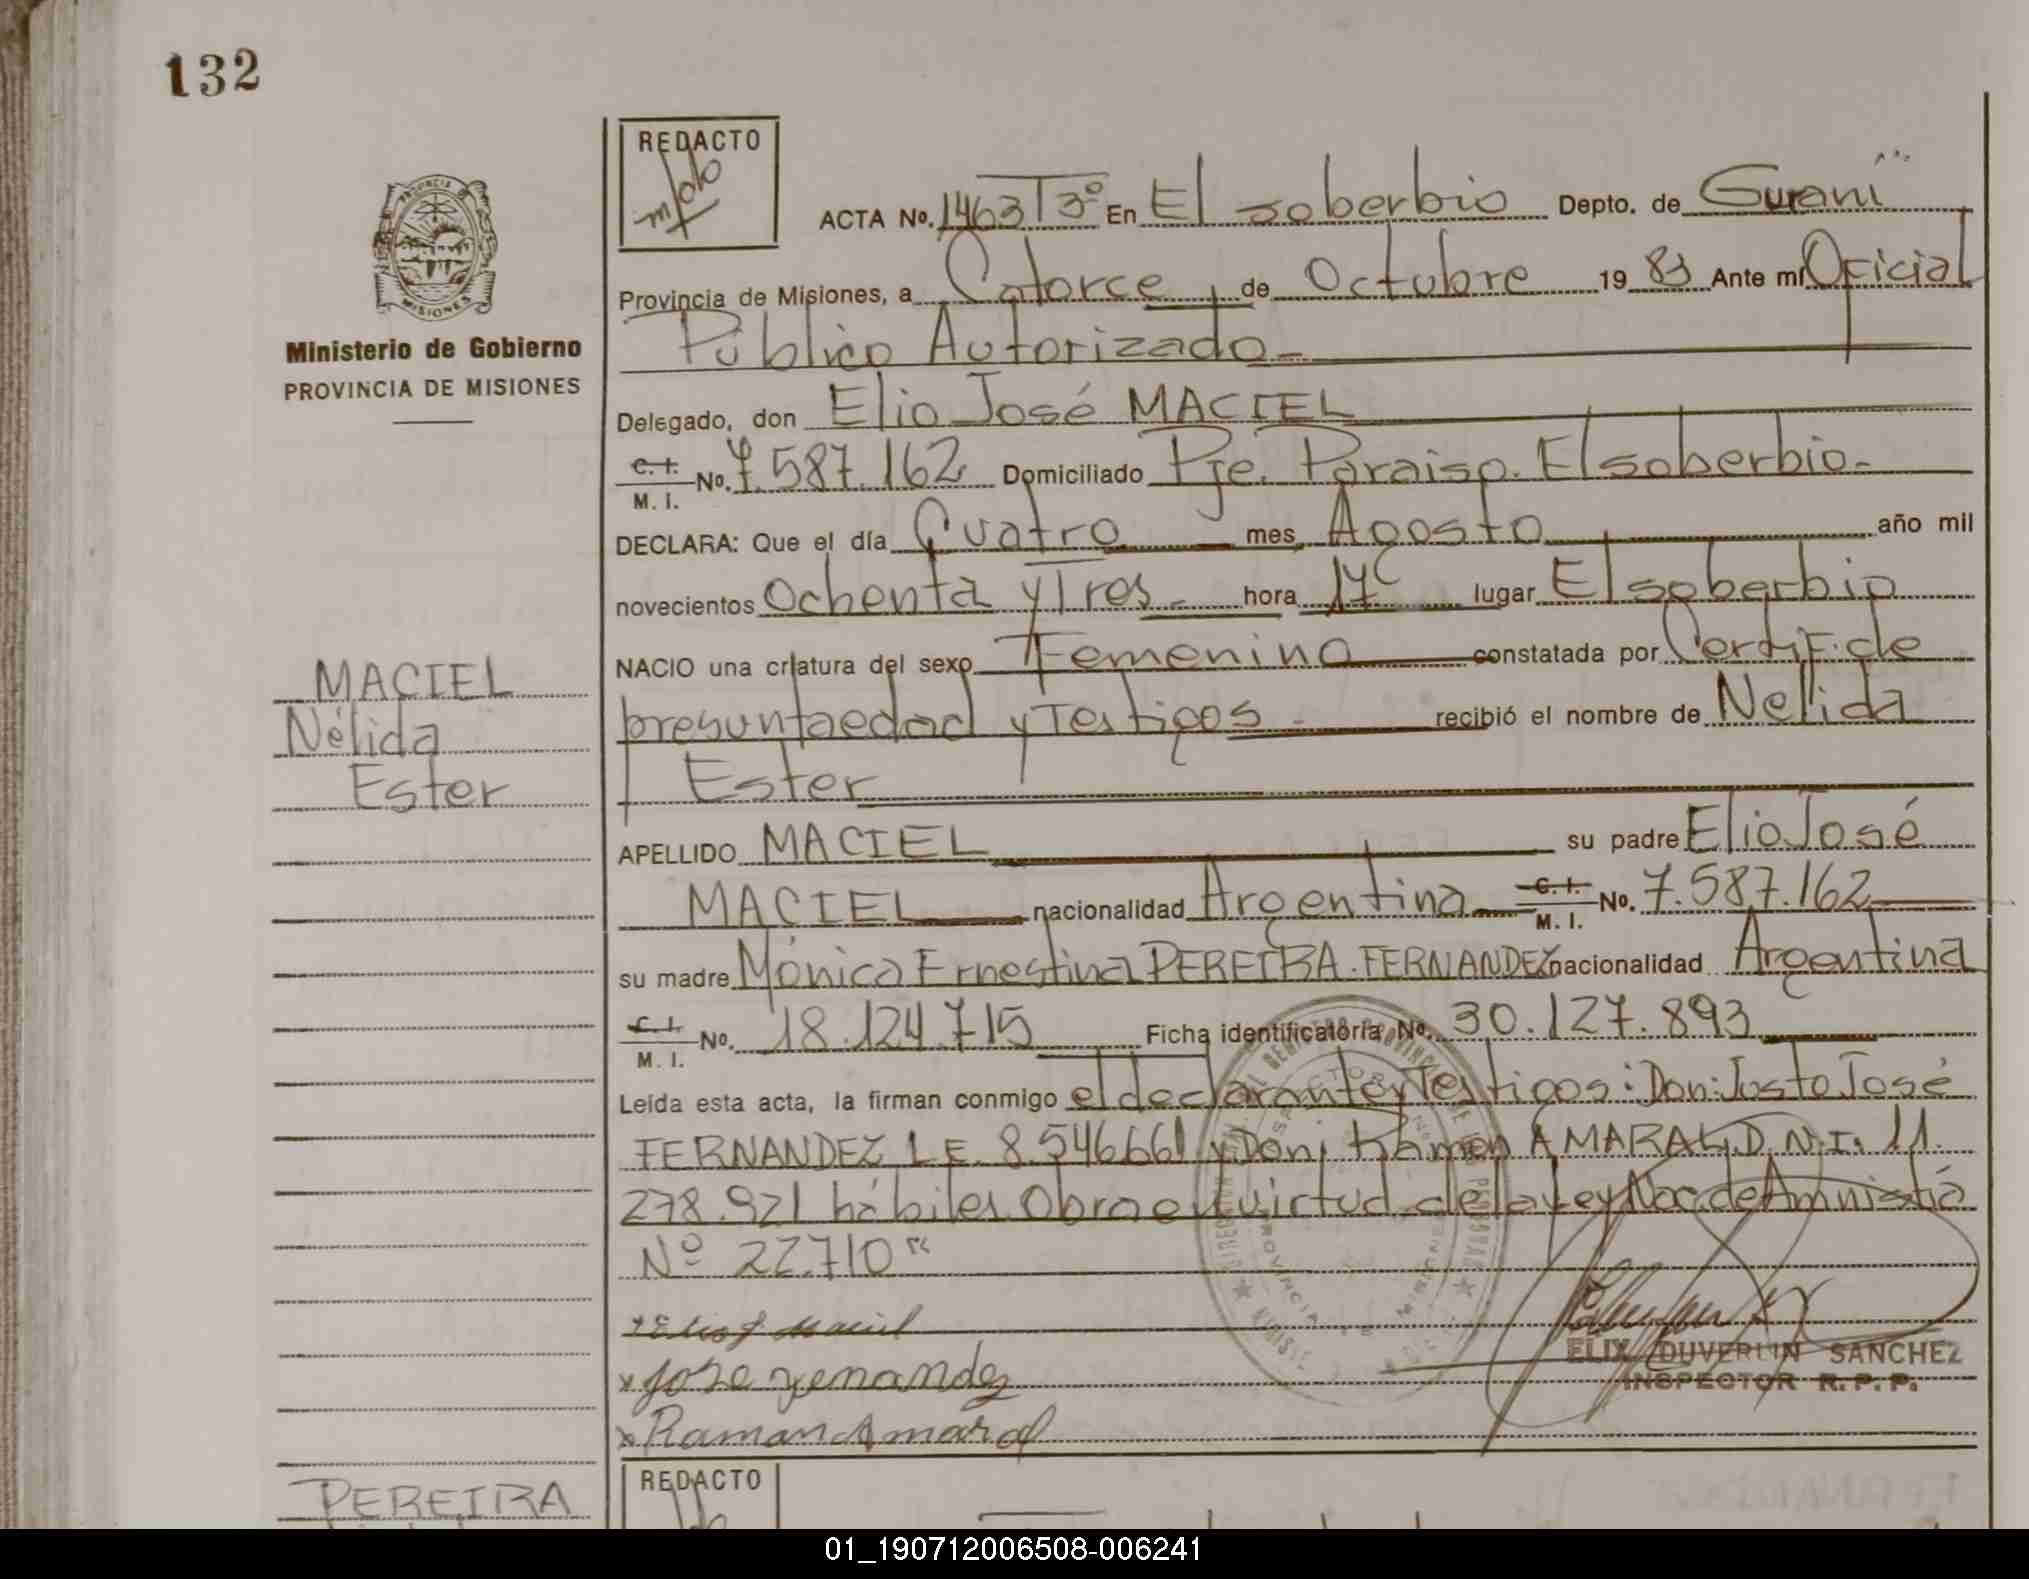 132
REDACTO
ACTA No. 1463 T3º En El soberbio Depto. de Guraní
Provincia de Misiones, a Catorce de Octubre 1983 Ante mí Oficial
Público Autorizado
Delegado, don Elio José MACIEL
C. I. M. I. No. 7.587.162 Domiciliado Pje. Paraiso. El soberbio
DECLARA: Que el día Cuatro mes Agosto año mil
novecientos Ochenta y Tres hora lugar El soberbio
NACIO una criatura del sexo Femenino constatada por Certif. de
presunta edad y Testigos recibió el nombre de Nelida
Ester
APELLIDO MACIEL su padre Elio José
MACIEL nacionalidad Argentina C. I. M. I. No. 7.587.162
su madre Mónica Ernestina PEREIRA. FERNANDEZ nacionalidad Argentina
C. I. M. I. No. 18.124.715 Ficha identificatoria No. 30.127.893
Leída esta acta, la firman conmigo el declarante y Testigos: Don: Justo José
FERNANDEZ L.E. 8.546661 y Don: Ramon AMARAL, D.N.I. 11.
278.921 hábiles. Obra en virtud de la Ley Nac. de Amnistía
Nº 22.710
x Elio J. Maciel
x Jose Fernandez
x Raman Amaral
ELIX DUVERLIN SANCHEZ
INSPECTOR R. P. P.
PROVINCIA
MISIONES
Ministerio de Gobierno
PROVINCIA DE MISIONES
MACIEL
Nélida
Ester
PEREIRA
REDACTO
01_190712006508-006241